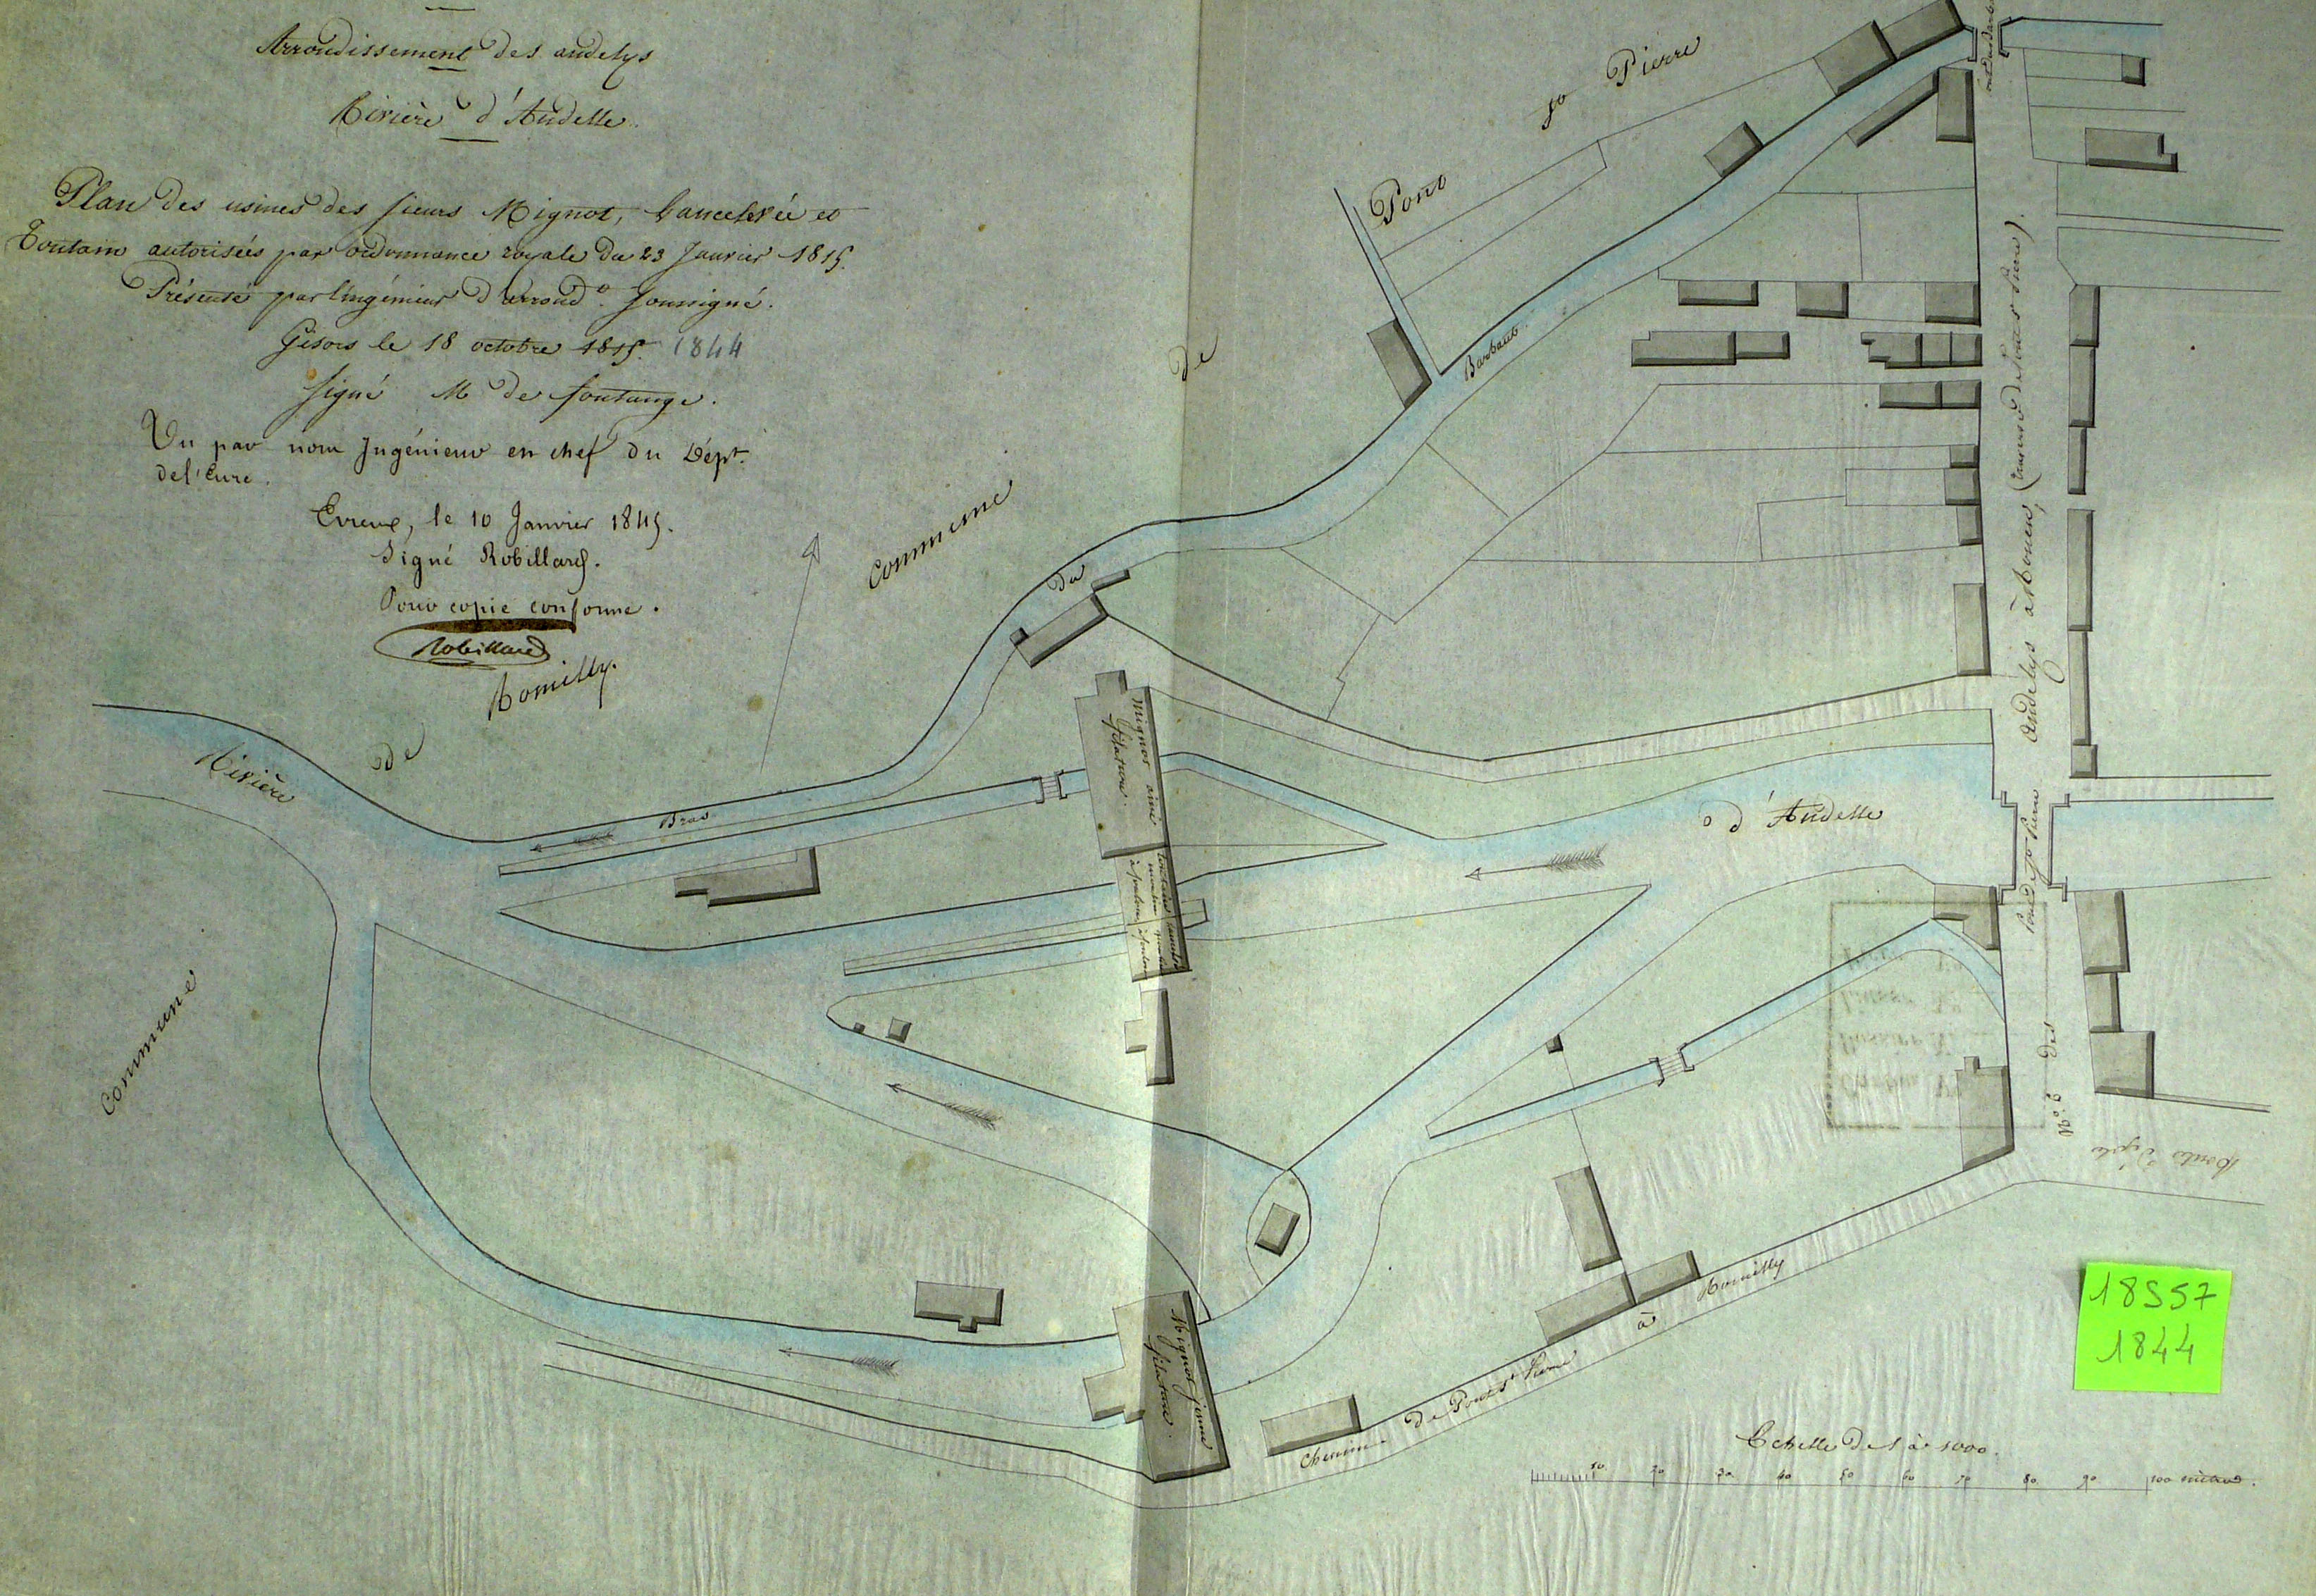 Arrondissement des andelys
Rivière d'Andelle
Plan des usines des sieurs Mignot, Lancelevée et
Toutain autorisés par ordonnance royale du 23 Janvier 1815.
Présenté par l'ingénieur d'arrond.t soussigné.
Gisors le 18 octobre 1815. 1844
signé M de fontange.
Vu par nous Ingénieur en chef du Dépt.
de l'Eure.
Evreux, le 10 Janvier 1845.
Signé Robillard.
Pour copie conforme.
Robillard
Commune de Pont St Pierre
Commune de Romilly
Rivière d'Andelle
Bras du Barbaut
Mignot ainé
filature
moulin
à foulon
Mignot jeune
filature
Pont St Pierre
N.º 6 des Andelys à Rouen, (traverse de Pont St Pierre)
Chemin de Pont St Pierre à Romilly
18S57
1844
Echelle de 1 à 1000.
10 20 30 40 50 60 70 80 90 100 mètres.